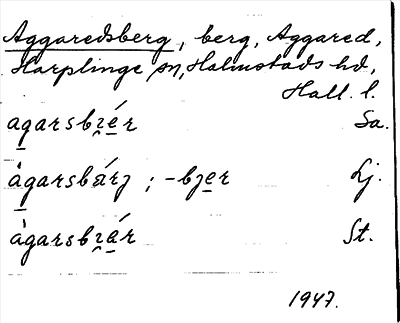 Aggaredsberg, berg, Aggared,
Harplinge sn, Halmstads hd,
Hall. l.
agarsbɿ̯ér Sa.
àgarsbárȷ ; -bȷer Lj.
àgarsbɿ̯ár St.
1947.